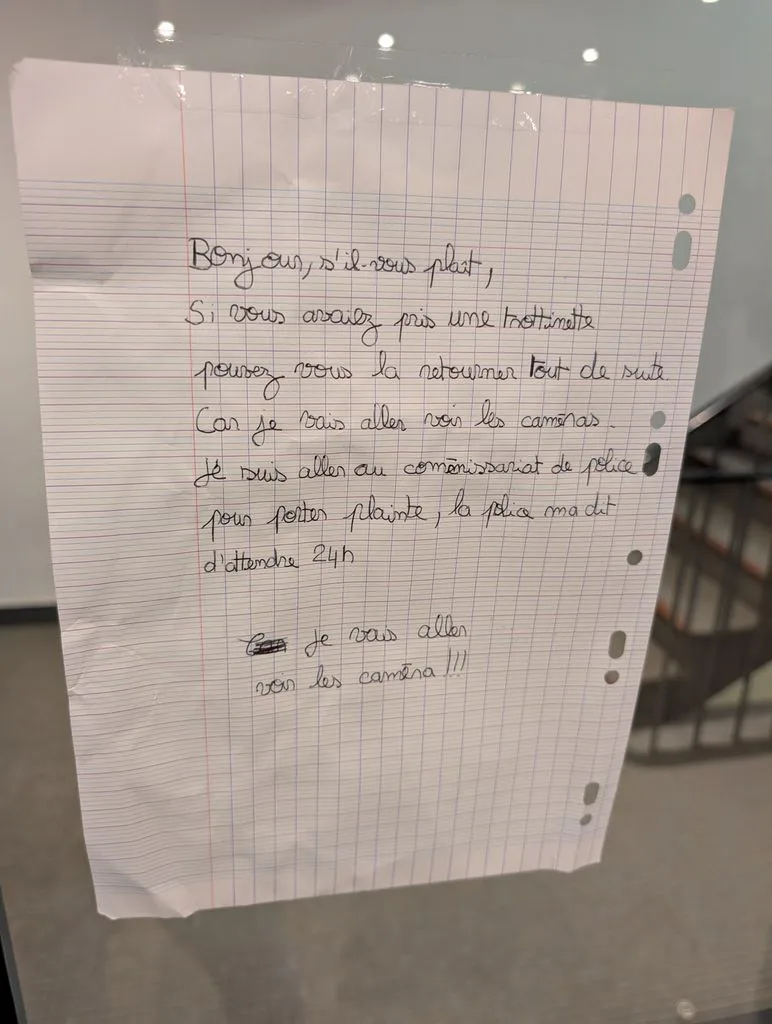 Bonjour, s'il-vous plait,
Si vous avaiez pris une trottinette
pouvez vous la retourner tout de suite
Car je vais aller voir les caméras.
Je suis aller au coménissariat de police
pour porter plainte, la police ma dit
d'attendre 24h
Je vais aller
voir les caméra !!!